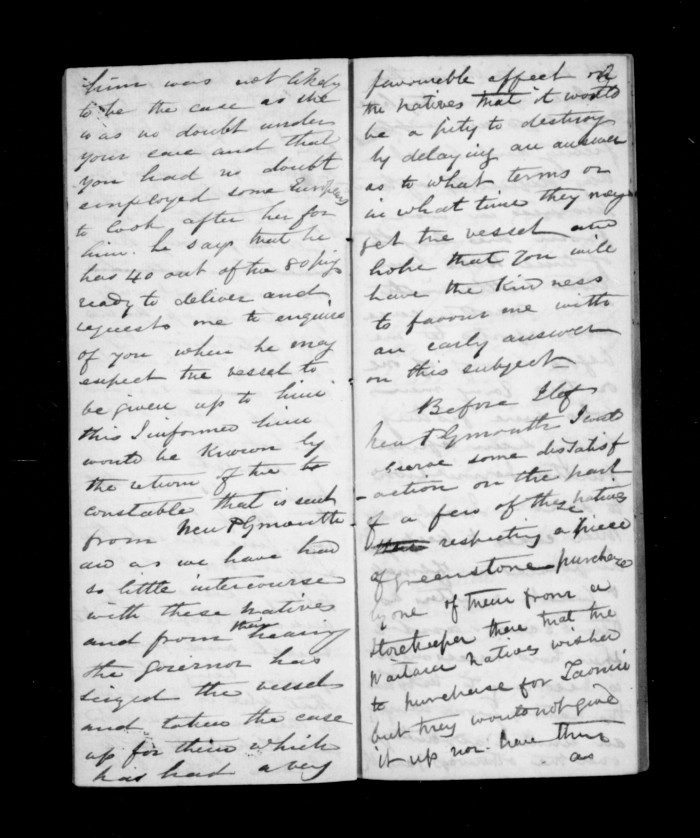 him was not likely
to be the case as she
was no doubt under
your care and that
you had no doubt
employed some Europeans
to look after her for
him. he says that he
has 40 out of the 80 pigs
ready to deliver and
requests me to enquire
of you when he may
expect the vessel to
be given up to him
this I informed him
would be known by
the return of the to
constable that is sent
from New Plymouth
and as we have had
so little intercourse
with these natives
and from their hearing
the governor has
seized the vessel
and taken the case
up for them which
has had a very
favourable affect on
the natives that it would
be a pity to destroy
by delaying an answer
as to what terms or
in what time they may
get the vessel and
hope that you will
have the kindness
to favour me with
an early answer
on this subject
Before I left
New Plymouth I was
observe some dissatisf
-action on the part
of a few of these natives
respecting a piece
of greenstone purchased
by one of them from a
storekeeper there that the
Waitara natives wished
to purchase for
but they would not give
it up nor have them
as